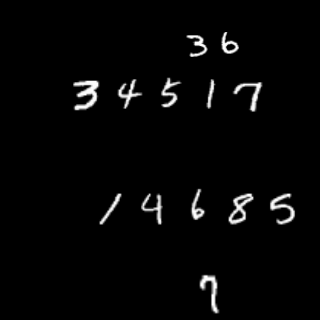 36
34517
14685
7